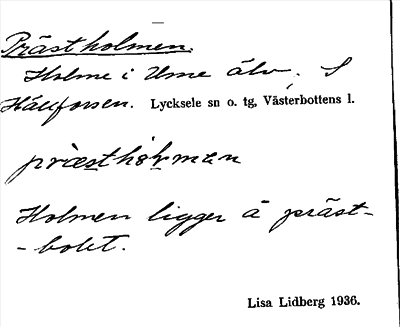 Prästholmen.
Holme i Ume älv. S
Hällforsen. Lycksele sn o. tg, Västerbottens l.
præsthòlmen
Holmen ligger å präst-
-bolet.
Lisa Lidberg 1936.